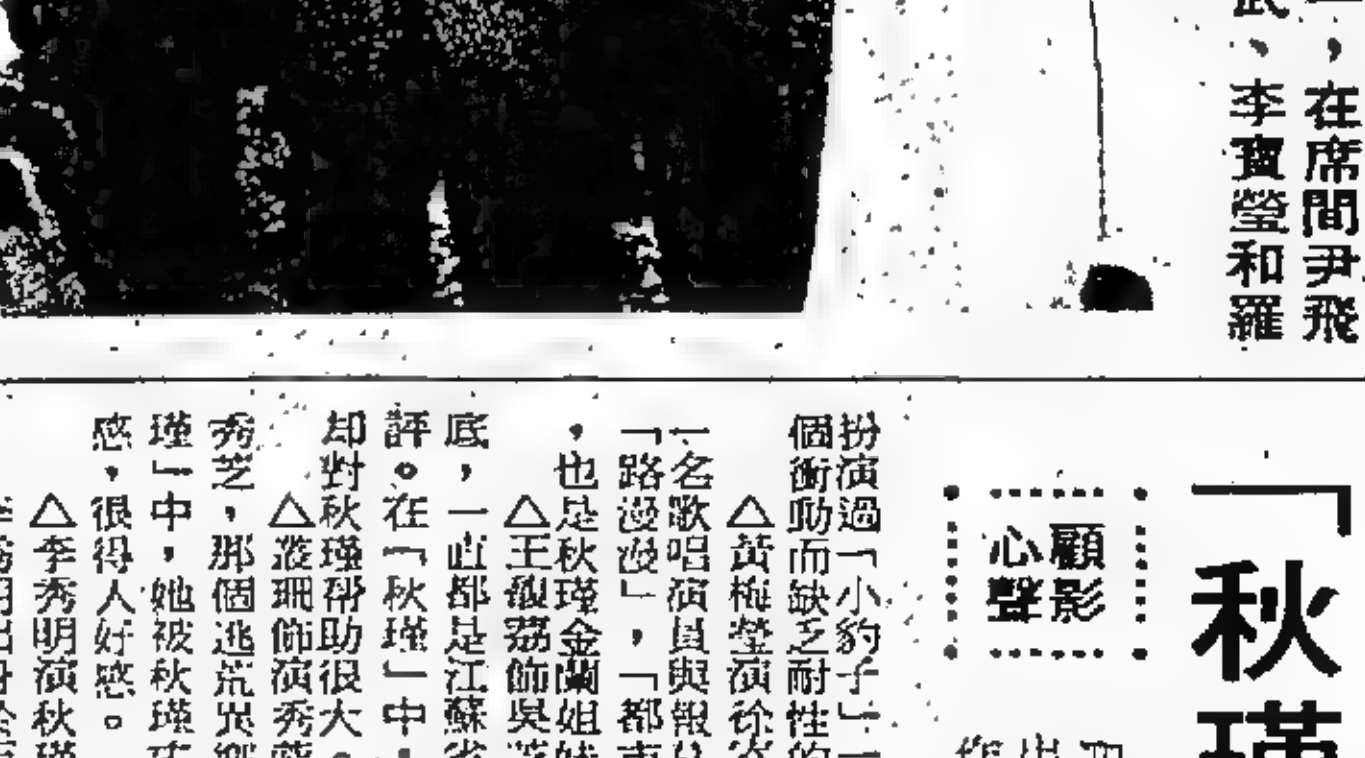 ，在席間尹飛
武、李寶瑩和羅
「秋瑾
顧影
心聲
扮演過「小豹子」一
個衝動而缺乏耐性的
△黃梅瑩演徐
一名歌唱演員與報
「路漫漫」，「都市
，也是秋瑾金蘭姐妹
△王馥荔飾吳芝
底，一直都是江蘇省
評。在「秋瑾」中，
却對秋瑾帮助很大。
△叢珊飾演秀
秀芝，那個逃荒異鄉
瑾」中，她被秋瑾
感，很得人好感。
△李秀明演秋瑾